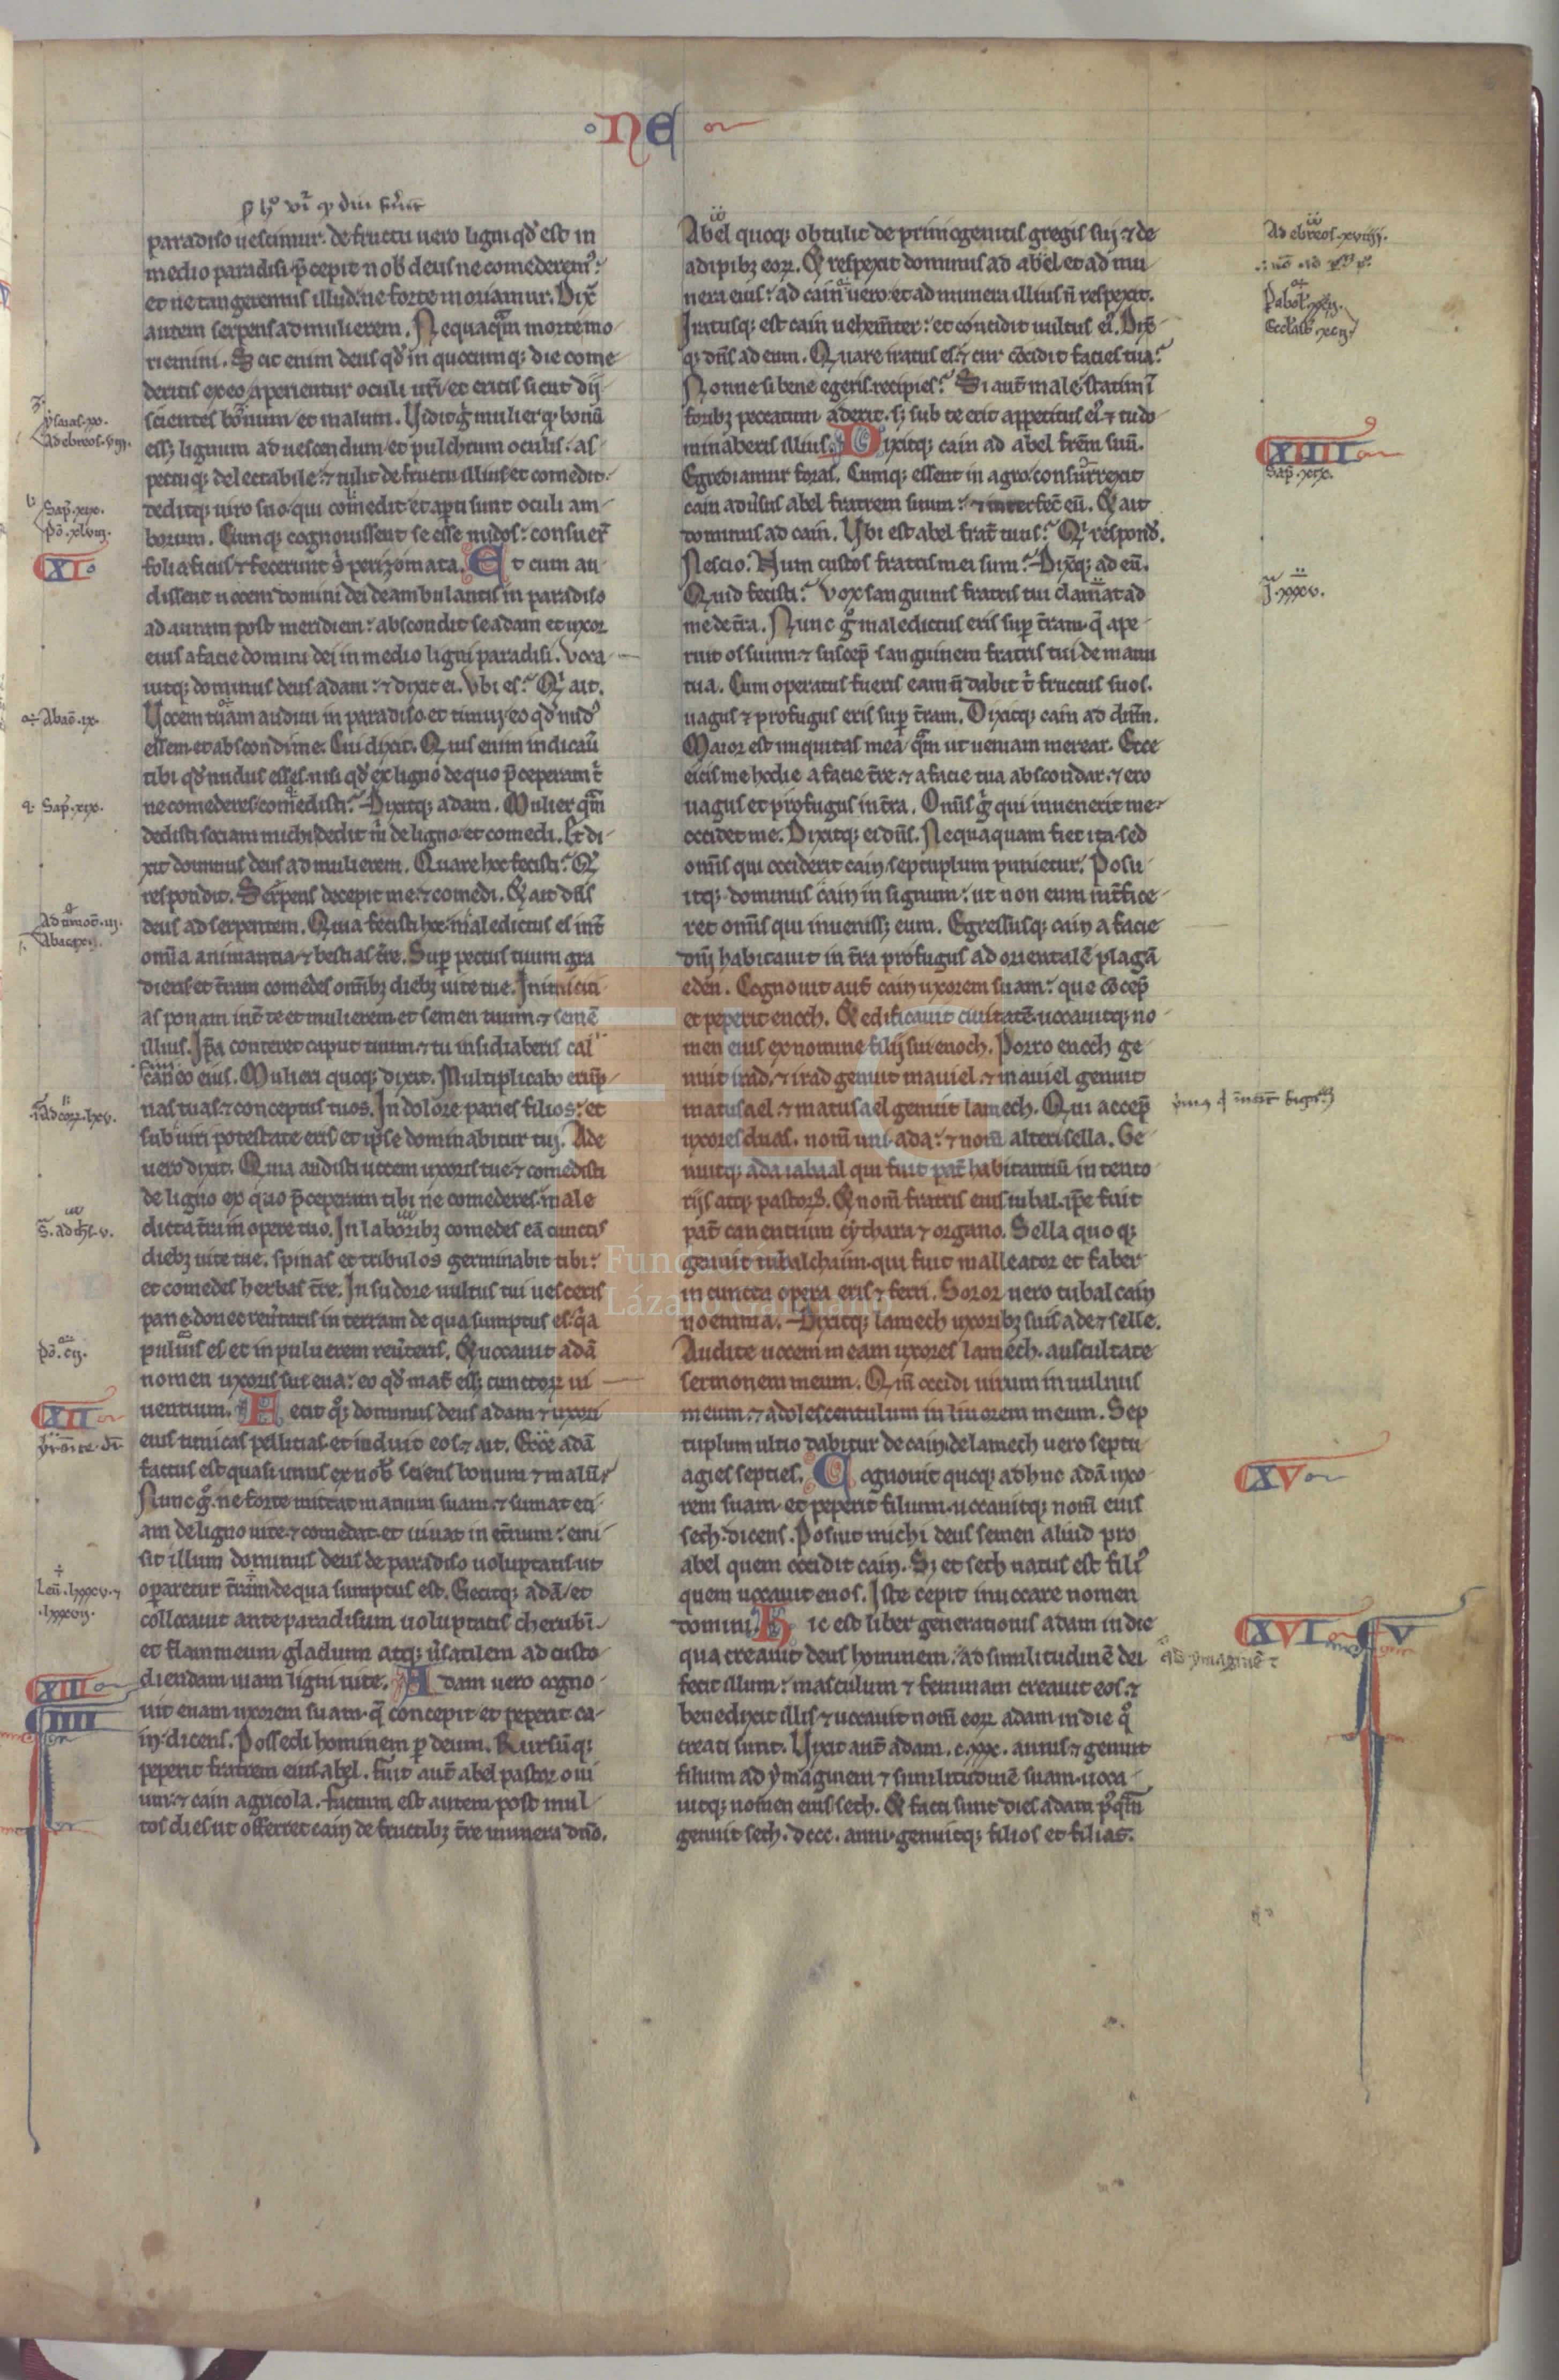 NE
paradiso uescimur. de fructu uero ligni qd̓ est in
medio paradisi p̄cepit nob̓ deus ne comederem᷒:
et ne tangeremus illud. ne forte moriamur. Dix̄
autem serpens ad mulierem. Nequaq̄m morte mo
riemini. Scit enim deus qd̓ in quocumq; die come
deritis ex eo aperientur oculi ur̄i et eritis sicut dij
scientes bonum et malum. Uidit g̊ mulier q̛ bonū
ess; lignum ad uescendum et pulchrum oculis. as
pectuq; delectabile: ⁊ tulit de fructu illius et comedit.
deditq; uiro suo qui comedit et apti sunt oculi am
borum. Cumq; cognouissent se esse nudos: consuer̄
folia ficus ⁊ fecerunt s̓ perizomata. Et cum au
XI
dissent uocem domini dei deambulantis in paradiso
ad auram post meridiem: abscondit se adam et uxor
eius a facie domini dei in medio ligni paradisi. Uoca
uitq; dominus deus adam: ⁊ dixit ei. Ubi es? Qi ait.
Uocem tuam audiui in paradiso et timui eo qd̓ nud᷒
essem et abscondi me. Cui dixit. Quis enim indicau̅
tibi qd̓ nudus esses nisi qd̓ ex ligno de quo p̄ceperam t̓
ne comederes comedisti? Dixitq; adam. Mulier q̄m
dedisti sociam michi dedit m̓ de ligno et comedi. Et di
xit dominus deus ad mulierem. Quare hoc fecisti? Q̄
respondit. Serpens decepit me ⁊ comedi. Et ait dn̄s
deus ad serpentem. Quia fecisti hoc maledictus es int̄
omnia animantia ⁊ bestias t̄re. Sup̱ pectus tuum gra
dieris et t̄ram comedes omīb; dieb; uite tue. Inimiciti
as ponam int̄ te et mulierem et semen tuum ⁊ semē
illius. Ip̄a conteret caput tuum ⁊ tu insidiaberis cal
caneo eius. Mulieri quoq; dixit. Multiplicabo erūp
nas tuas ⁊ conceptus tuos. In dolore paries filios: et
sub uiri potestate eris et ip̄se dominabitur tui. Ade
uero dixit. Quia audisti uocem uxoris tue ⁊ comedisti
de ligno ex quo p̄ceperam tibi ne comederes male
dicta t̄ra in opere tuo. In laborib; comedes eā cunctis
dieb; uite tue. spinas et tribulos germinabit tibi:
et comedes herbas t̄re. In sudore uultus tui uesceris
pane donec reu̓taris in terram de qua sumptus es. q̓a
puluis es et in puluerem reu̓teris. Et uocauit adā
nomen uxoris sue eua: eo qd̓ mat̄ ess; cunctoꝝ ui
uentium. Fecit q̊; dominus deus adam ⁊ uxori
XII
eius tunicas pellicias et induit eos ⁊ ait. Ecce adā
factus est quasi unus ex nob̓ sciens bonum ⁊ malū.
Nunc g̊ ne forte mittat manum suam ⁊ sumat eti
am de ligno uite ⁊ comedat et uiuat in et̄num: emi
sit illum dominus deus de paradiso uoluptatis ut
operaretur t̄ram de qua sumptus est. Eiecitq; adā et
collocauit ante paradisum uoluptatis cherubī
et flammeum gladium atq; u̓satilem ad custo
diendam uiam ligni uite. Adam uero cogno
XIII
uit euam uxorem suam q̄ concepit et peperit ca
IIII
in dicens. Possedi hominem p̱ deum. Rursūq;
peperit fratrem eius abel. fuit aut̄ abel pastor oui
um ⁊ cain agricola. factum est autem post mul
tos dies ut offerret cain de fructib; t̄re munera dn̄o.
Abel quoq; obtulit de primogenitis gregis sui ⁊ de
adipib; eoꝝ. Et respexit dominus ad abel et ad mu
nera eius: ad cain uero et ad munera illius n̄ respexit.
Iratusq; est cain uehem̄ter: et concidit uultus ei᷒. Dix̄
q; dn̄s ad eum. Quare iratus es ⁊ cur cōcidit facies tua?
Nonne si bene egeris recipies? Si aut̄ male statim ī
forib; peccatum aderit. s; sub te erit appetitus ei᷒ ⁊ tu do
minaberis illius. Dixitq; cain ad abel frēm suū.
XIIII
Egrediamur foras. Cumq; essent in agro consurrexit
cain adu̓sus abel fratrem suum: ⁊ interfec̄ eū. Et ait
dominus ad cain. Ubi est abel frat̄ tuus? Qi respond̓.
Nescio. Num custos fratris mei sum? Dix̄q; ad eū.
Quid fecisti? Vox sanguinis fratris tui clamat ad
me de t̄ra. Nunc g̊ maledictus eris sup̱ t̄ram q̄ ape
ruit os suum ⁊ suscep̄ sanguinem fratris tui de manu
tua. Cum operatus fueris eam n̄ dabit t̓ fructus suos.
uagus ⁊ profugus eris sup̱ t̄ram. Dixitq; cain ad dn̄m.
Maior est iniquitas mea q̄m ut ueniam merear. Ecce
eicis me hodie a facie t̄re ⁊ a facie tua abscondar ⁊ ero
uagus et profugus in t̄ra. Omīs g̊ qui inuenerit me
occidet me. Dixitq; ei dn̄s. Nequaquam fiet ita sed
omīs qui occiderit cain septuplum punietur. Posu
itq; dominus cain in signum: ut non eum int̄fice
ret omīs qui inueniss; eum. Egressusq; cain a facie
dn̄i habitauit in t̄ra profugus ad orientalē plagā
eden. Cognouit aut̄ cain uxorem suam: que cōcep̄
et peperit enoch. Et edificauit ciuitatē uocauitq; no
men eius ex nomine filij sui enoch. Porro enoch ge
nuit irad. ⁊ irad genuit mauiel. ⁊ mauiel genuit
matusael. ⁊ matusael genuit lamech. Qui accep̄
uxores duas. nom̄ uni ada: ⁊ nom̄ alteri sella. Ge
nuitq; ada iabaal qui fuit pat̄ habitantiū in tento
rijs atq; pastoꝝ. Et nom̄ fratris eius iubal. ip̄e fuit
pat̄ canentium cythara ⁊ organo. Sella quoq;
genuit tubalchaim qui fuit malleator et faber
in cuncta opera eris ⁊ ferri. Soror uero tubal cain
noemma. Dixitq; lamech uxorib; suis ade ⁊ selle.
Audite uocem meam uxores lamech. auscultate
sermonem meum. Qm̄ occidi uirum in uulnus
meum ⁊ adolescentulum in liuorem meum. Sep
tuplum ultio dabitur de cain de lamech uero septu
agies septies. Cognouit quoq; adhuc adā uxo
XV
rem suam et peperit filium uocauitq; nom̄ eius
seth dicens. Posuit michi deus semen aliud pro
abel quem occidit cain. S; et seth natus est fili᷒
quem uocauit enos. Iste cepit inuocare nomen
domini. Hic est liber generationis adam in die
XVI V
qua creauit deus hominem. ad similitudinē dei
fecit illum: masculum ⁊ feminam creauit eos ⁊
benedixit illis ⁊ uocauit nom̄ eoꝝ adam in die q̊
creati sunt. Uixit aut̄ adam. c.xxx. annis ⁊ genuit
filium ad ymaginem ⁊ similitudinē suam uoca
uitq; nomen eius seth. Et facti sunt dies adam p᷒q̄m
genuit seth. dccc. anni genuitq; filios et filias.
Fundación
Lázaro Galdiano